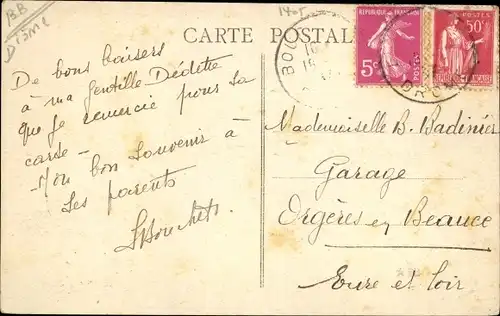 B.B
Drôme
14-5
CARTE POSTALE
BOU
DRO
RÉPUBLIQUE FRANÇAISE
5c
POSTES
POSTES
50c
De bons baisers
à ma gentille Dédette
que je remercie pour sa
carte -
Mon bon souvenir à
ses parents
Mademoiselle B. Badinier
Garage
Orgères en Beauce
Eure et Loir